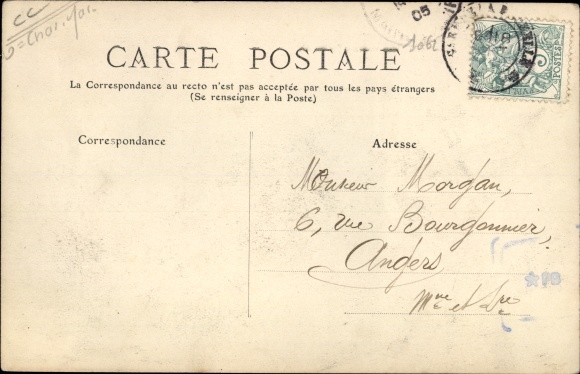 CC
05
CARTE POSTALE
La Correspondance au recto n'est pas acceptée par tous les pays étrangers
(Se renseigner à la Poste)
Correspondance
Adresse
POSTES
Monsieur Morgan,
6, rue Bourgonnier,
Angers
Mne et Lre